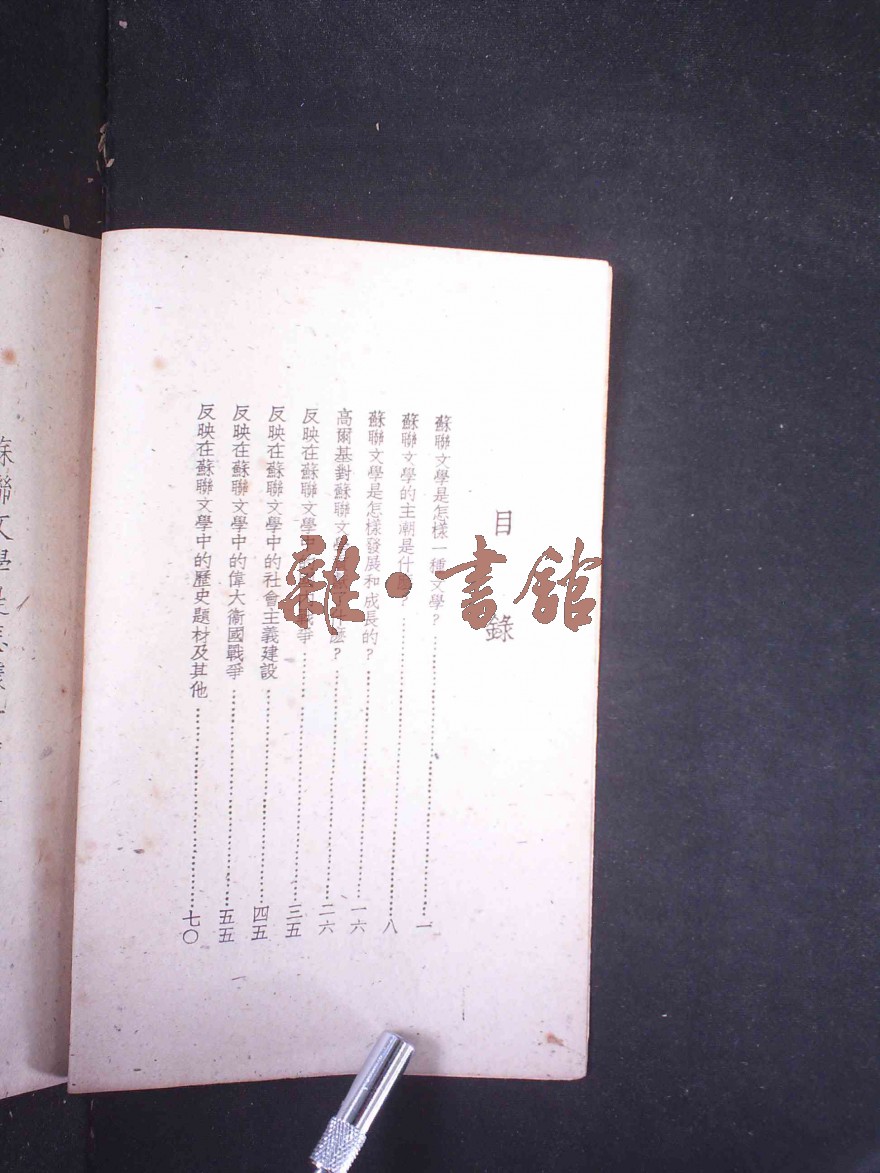 目錄
蘇聯文學是怎樣一種文學？……一
蘇聯文學的主潮是什麼？……八
蘇聯文學是怎樣發展和成長的？……一六
高爾基對蘇聯文學什麽？……二六
反映在蘇聯文學中戰爭……三五
反映在蘇聯文學中的社會主義建設……四五
反映在蘇聯文學中的偉大衞國戰爭……五五
反映在蘇聯文學中的歷史題材及其他……七〇
一
雜·書館
蘇聯文學是怎樣